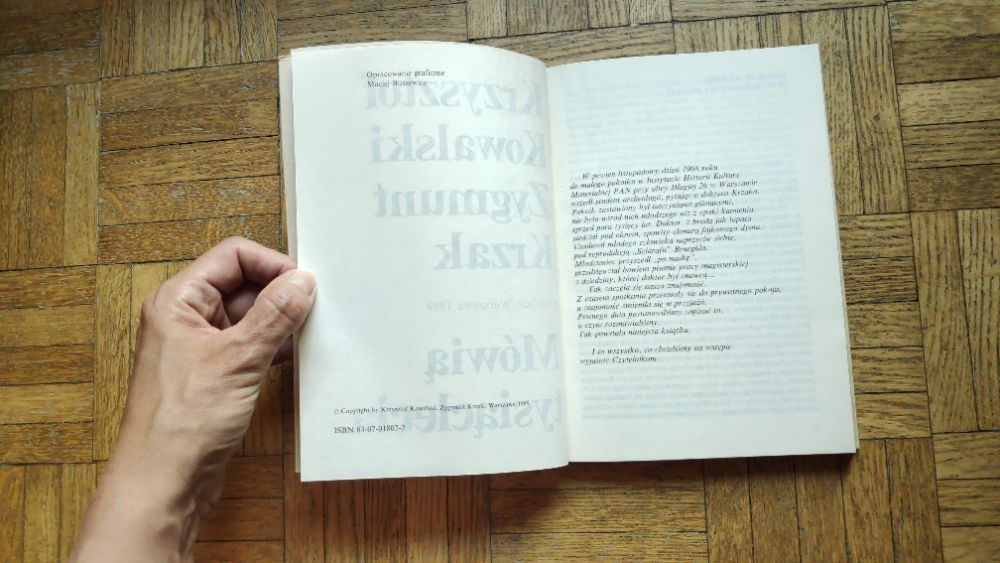 Opracowanie graficzne
Maciej Buszewicz
Krzysztof
Kowalski
Zygmunt
Krzak
Czytelnik Warszawa 1989
Mówią
tysiąclecia
© Copyright by Krzysztof Kowalski, Zygmunt Krzak, Warszawa 1989
ISBN 83-07-01807-2
W pewien listopadowy dzień 1968 roku
do małego pokoiku w Instytucie Historii Kultury
Materialnej PAN przy ulicy Długiej 26 w Warszawie
wszedł student archeologii, pytając o doktora Krzaka.
Pokoik zastawiony był naczyniami glinianymi,
nie było wśród nich młodszego niż z epoki kamienia,
sprzed paru tysięcy lat. Doktor, z brodą jak łopata,
siedział pod oknem, spowity chmurą fajkowego dymu.
Usadowił młodego człowieka naprzeciw siebie,
pod reprodukcją „Solarafu” Bruegla.
Młodzieniec przyszedł „po naukę”,
przedsięwziął bowiem pisanie pracy magisterskiej
z dziedziny, której doktor był znawcą...
Tak zaczęła się nasza znajomość.
Z czasem spotkania przeniosły się do prywatnego pokoju,
a znajomość zmieniła się w przyjaźń.
Pewnego dnia postanowiliśmy zapisać to,
o czym rozmawialiśmy.
Tak powstała niniejsza książka.
I to wszystko, co chcieliśmy na wstępie
wyjaśnić Czytelnikom.